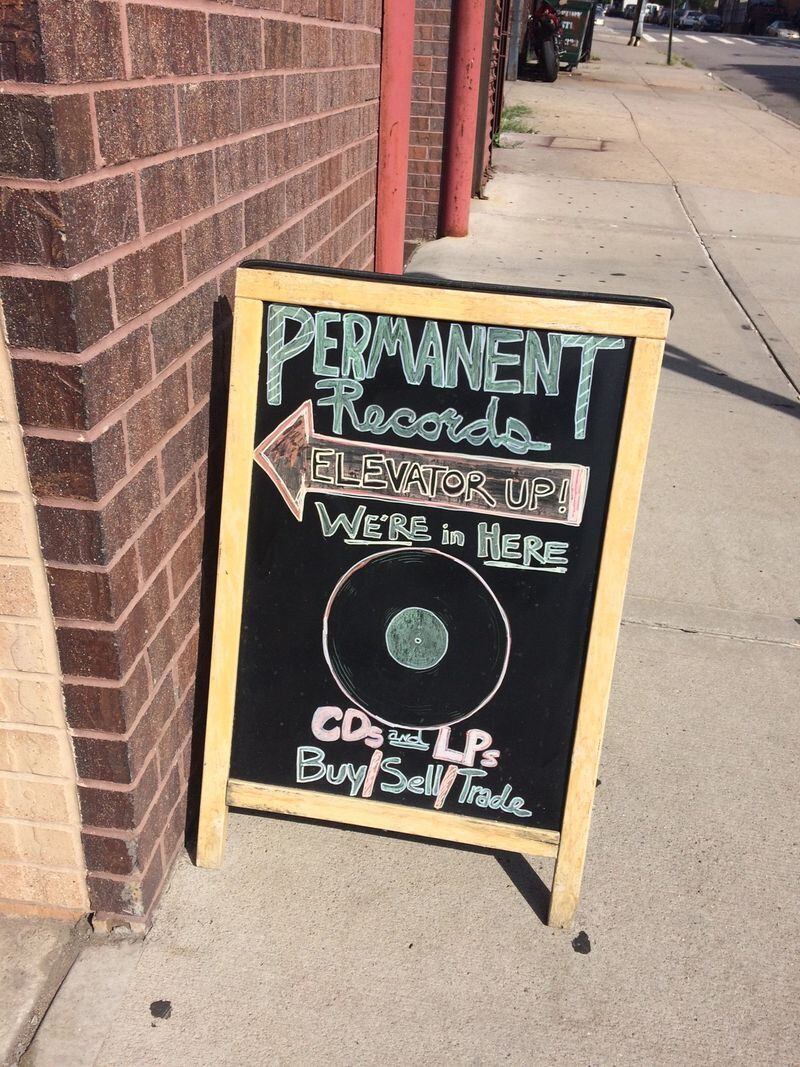 PERMANENT
Records
ELEVATOR UP!
WE'RE in HERE
CDs and LPs
Buy/Sell/Trade